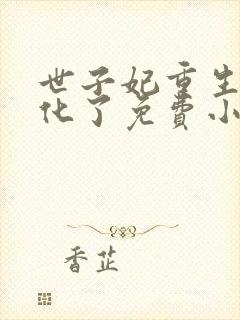 世子妃重生
化了免费小
香芷